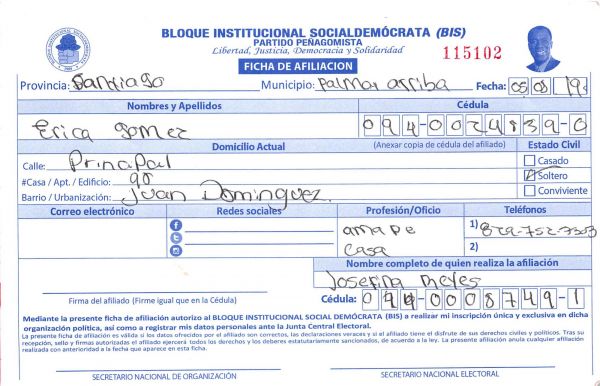 BLOQUE INSTITUCIONAL SOCIALDEMÓCRATA (BIS)
PARTIDO PEÑAGOMISTA
Libertad, Justicia, Democracia y Solidaridad
115102
FICHA DE AFILIACION
Provincia: Santiago Municipio: Palmar arriba Fecha: 05 08 19
Nombres y Apellidos Cédula
Erica Gomez 094-0024839-0
Domicilio Actual (Anexar copia de cédula del afiliado) Estado Civil
Calle: Prinapal Casado
#Casa / Apt. / Edificio: 90 Soltero
Barrio / Urbanización: Juan Dominguez. Conviviente
Correo electrónico Redes sociales Profesión/Oficio Teléfonos
ama de 1) 829-752-7303
Casa 2)
Nombre completo de quien realiza la afiliación
Josefina Reyes
Firma del afiliado (Firme igual que en la Cédula) Cédula: 094-0008749-1
Mediante la presente ficha de afiliación autorizo al BLOQUE INSTITUCIONAL SOCIAL DEMÓCRATA (BIS) a realizar mi inscripción única y exclusiva en dicha
organización política, así como a registrar mis datos personales ante la Junta Central Electoral.
La presente ficha de afiliación es válida si los datos ofrecidos por el afiliado son correctos, las declaraciones veraces y si el afiliado tiene el disfrute de sus derechos civiles y políticos. Tras su
recepción, sello y firmas autorizadas el afiliado ejercerá todos los derechos y los deberes estatutariamente sancionados, de acuerdo a la ley. La presente afiliación anula cualquier afiliación
realizada con anterioridad a la fecha que aparece en esta ficha.
SECRETARIO NACIONAL DE ORGANIZACIÓN SECRETARIO NACIONAL ELECTORAL